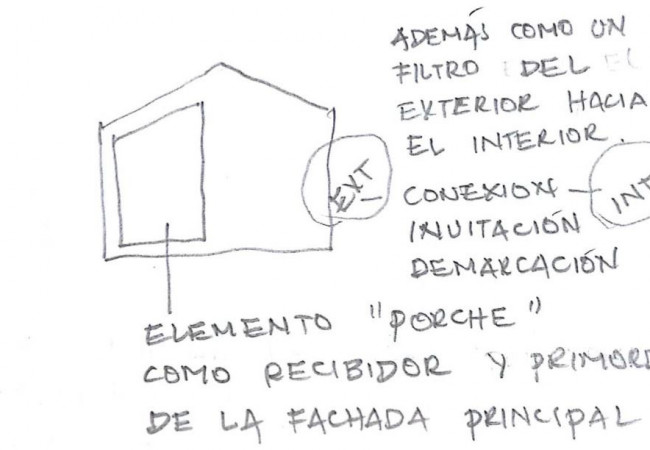 ADEMÁS COMO UN
FILTRO DEL
EXTERIOR HACIA
EL INTERIOR.
EXT
CONEXION
INT
INVITACIÓN
DEMARCACIÓN
ELEMENTO "PORCHE"
COMO RECIBIDOR Y PRIMORD
DE LA FACHADA PRINCIPAL